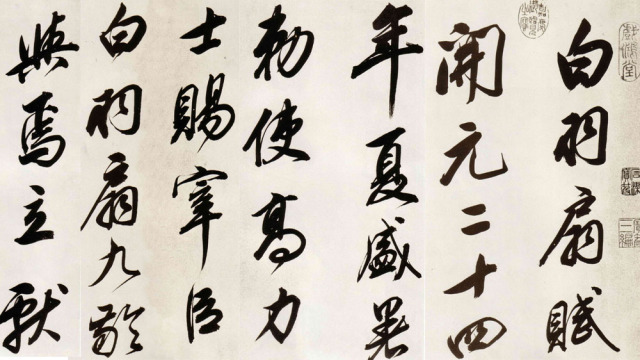 白羽扇賦
開元二十四
年夏盛暑
勅使高力
士賜宰臣
白羽扇九齡
與焉立獻